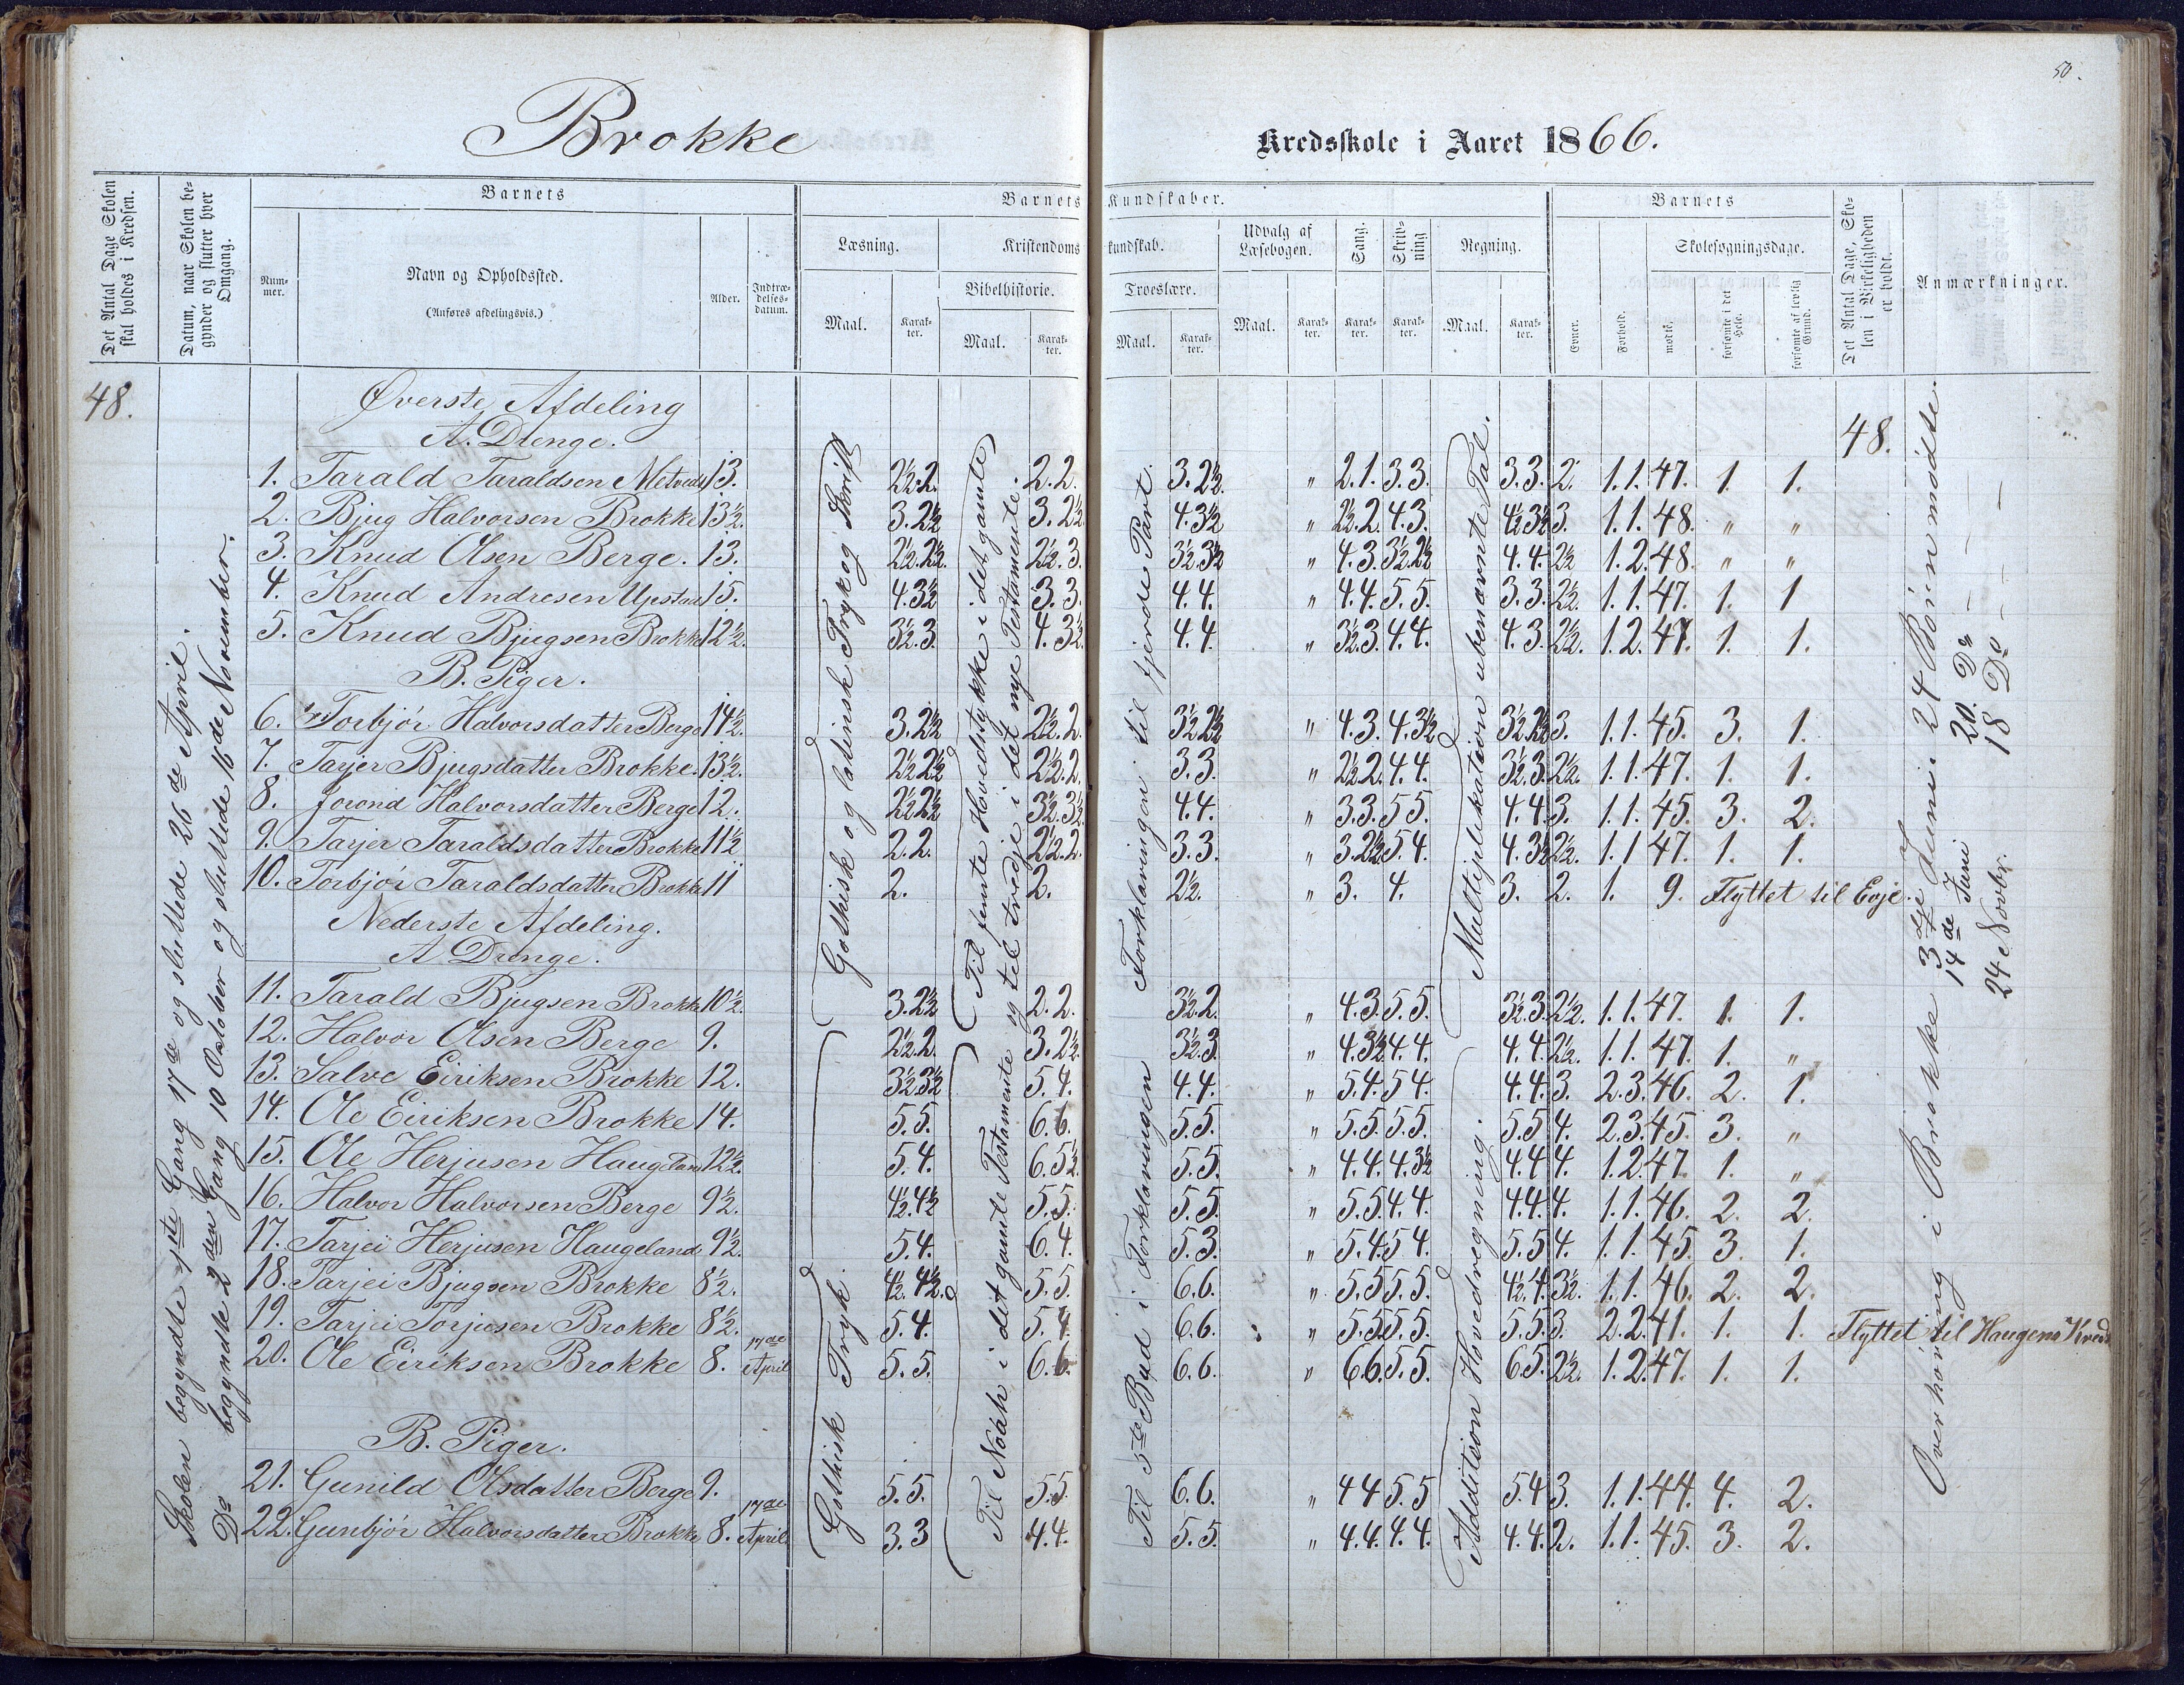 50.
Brokke Kredsskole i Aaret 1866.
Det Antal Dage Skolen skal holdes i Kredsen.
Datum, naar Skolen begynder og slutter hver Omgang.
Barnets
Nummer.
Navn og Opholdssted.
(Anføres afdelingsvis.)
Alder.
Indtrædelsesdatum.
Barnets Kundskaber.
Læsning.
Maal.
Karakter.
Kristendomskundskab.
Bibelhistorie.
Maal.
Karakter.
Troeslære.
Maal.
Karakter.
Udvalg af Læsebogen.
Maal.
Karakter.
Sang.
Karakter.
Skrivning
Karakter.
Regning.
Maal.
Karakter.
Barnets
Evner.
Forhold.
Skolesøgningsdage.
mødte.
forsømte i det Hele.
forsømte af lovlig Grund.
Det Antal Dage, Skolen i Virkeligheden er holdt.
Anmærkninger.
48.
Skolen begyndte 1ste Gang 17de og sluttede 26de April.
Do begyndte 2den Gang 10 October og sluttede 16de November.
Gothisk og latinsk Tryk og Skrift
Til femte Hovedstykke i det gamle og til tredje i det nye Testamente.
Forklaringen til fjerde Part.
Multiplikation ubenævnte Tal.
48.
Øverste Afdeling
A. Drenge.
1. Tarald Taraldsen Metveds 13. 2½.2. 2.2. 3.2½. " 2.1. 3.3. 3.3. 2. 1.1. 47. 1. 1.
2. Bjug Halvorsen Brokke 13½. 3.2½ 3.2½ 4.3½ " 2½.2. 4.3. 4½.3½ 3. 1.1. 48. " "
3. Knud Olsen Berge. 13. 2½.2½. 2½.3. 3½.3½ " 4.3. 3½.2½ 4.4. 2½ 1.2. 48. " "
4. Knud Andresen Upstad 15. 4.3½ 3.3. 4.4. " 4.4. 5.5. 3.3. 2½. 1.1. 47. 1. 1
5. Knud Bjugsen Brokke 12½. 3½.3. 4.3½. 4.4. " 3½.3. 4.4. 4.3. 2½. 1.2. 47. 1. 1.
B. Piger.
6. Torbjør Halvorsdatter Berge 14½. 3.2½ 2½.2. 3½.2½ " 4.3. 4.3½ 3½.2½ 3. 1.1. 45. 3. 1.
7. Tarjer Bjugsdatter Brokke. 13½. 2½.2½ 2½.2. 3.3. " 2½.2. 4.4. 3½.3. 2½. 1.1. 47. 1. 1.
8. Jorond Halvorsdatter Berge 12. 2½.2½ 3½.3½. 4.4. " 3.3. 5.5. 4.4. 3. 1.1. 45. 3. 2.
9. Tarjer Taraldsdatter Brokke 11½ 2.2. 2½.2. 3.3. " 3.2½ 5.4. 4.3½ 2½. 1.1 47. 1. 1.
10. Torbjør Taraldsdatter Brokke 11 2. 2. 2½. " 3. 4. 3. 2. 1. 9. Flyttet til Evje.
Nederste Afdeling.
A Drenge.
11. Tarald Bjugsen Brokke 10½. 3.2½ 2.2. 3½.2. " 4.3. 5.5. 3½.3. 2½. 1.1. 47. 1. 1.
12. Halvor Olsen Berge 9. 2½.2. 3.2½. 3½.3. " 4.3½ 4.4. 4.4. 2½. 1.1. 47. 1. "
13. Salve Eiriksen Brokke 12. 3½.3½ 5.4. 4.4. " 5.4. 5.4. 4.4. 3. 2.3. 46. 2. 1.
14. Ole Eiriksen Brokke 14. 5.5. 6.6. 5.5. " 5.5. 5.5. 5.5 4. 2.3. 45. 3. "
15. Ole Herjusen Haugeland 12½. 5.4. 6.5½. 5.5. " 4.4. 4.3½ 4.4 4. 1.2. 47. 1. "
16. Halvor Halvorsen Berge 9½. 4½.4½ 5.5. 5.5. " 5.5. 4.4. 4.4. 4. 1.1. 46. 2. 2.
17. Tarjei Herjusen Haugeland 9½. 5.4. 6.4. 5.3. " 5.4. 5.4. 5.5 4. 1.1. 45. 3. 1.
18. Tarjei Bjugsen Brokke 8½. 4½.4½. 5.5. 6.6. " 5.5. 5.5. 4½.4. 3½. 1.1. 46. 2. 2.
19. Tarjei Torjusen Brokke 8½. 5.4. 5.4. 6.6. " 5.5. 5.5. 5.5. 3. 2.2. 41. 1. 1. Flyttet til Haugens Kreds
20. Ole Eiriksen Brokke 8. 17de April 5.5. 6.6. 6.6. " 6.6. 5.5 6.5. 2½. 1.2. 47. 1. 1.
B. Piger.
21. Gunild Olsdatter Berge 9. 5.5. 5.5. 6.6. " 4 4 5 5 5.4 3. 1.1. 44. 4. 2.
22. Gunbjør Halvorsdatter Brokke 8. 17de April 3.3 4.4. 5.5. " 4.4. 4.4. 4.4. 2. 1.1. 45. 3. 2.
Gothisk Tryk.
Til Noah i det gamle Testamente
Til 5te Bud i Forklaringen
Addition Hovedregning.
Overhøring i Brokke 3dje Juni 24 Børn mødte.
14de Juni 20. Do — —
24 Novbr. 18 Do — —